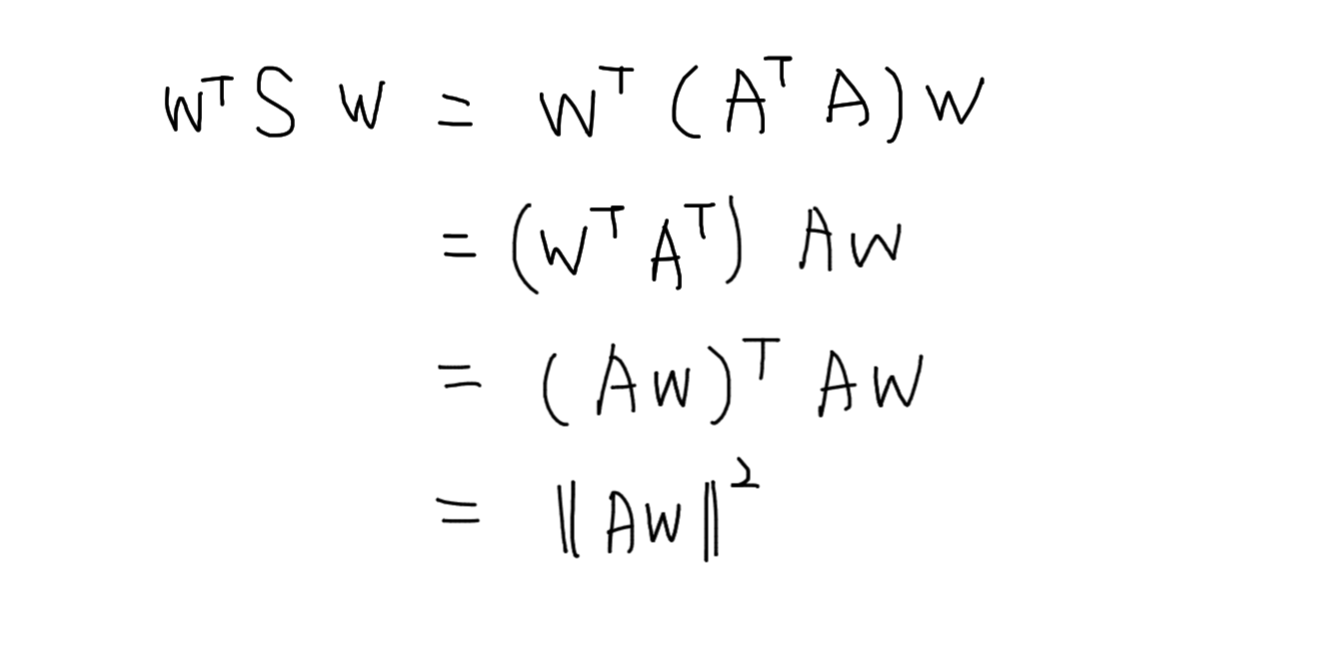 wᵀ S w = wᵀ (Aᵀ A) w
= (wᵀ Aᵀ) A w
= (A w)ᵀ A w
= ‖Aw‖²